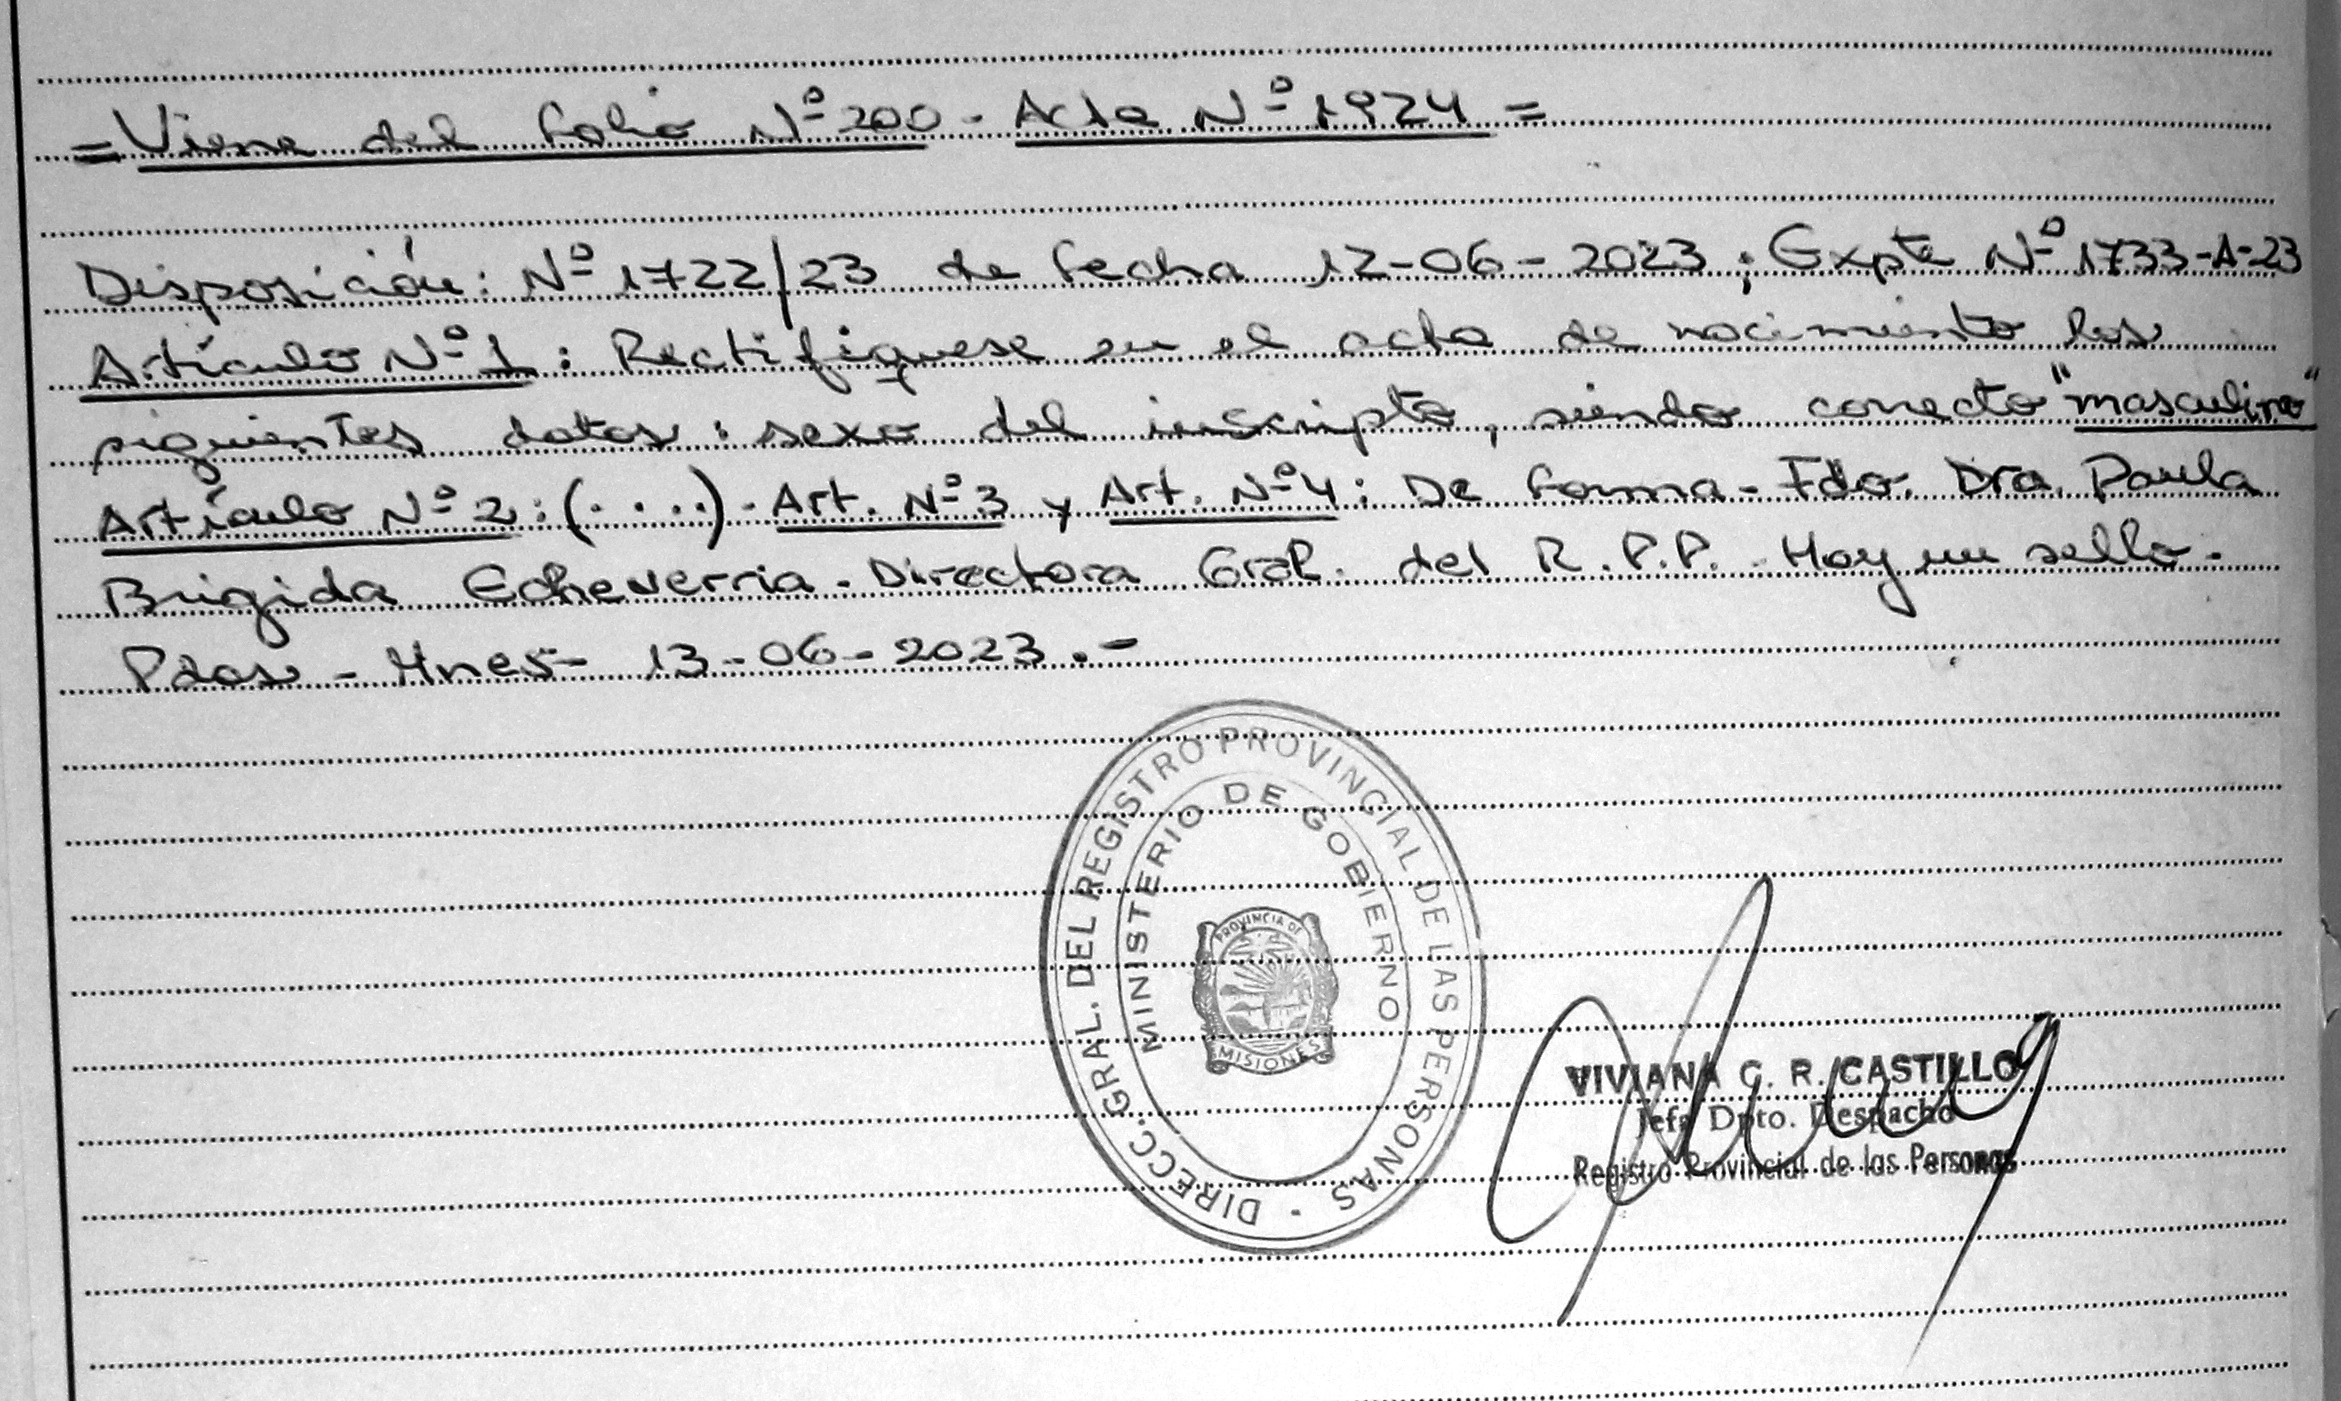 = Viene del folio Nº 200 - Acta Nº 1924 =
Disposición: Nº 1722/23 de fecha 12-06-2023; Expte Nº 1733-A-23
Artículo Nº 1: Rectifíquese en el acta de nacimiento los
siguientes datos: sexo del inscripto, siendo correcto "masculino"
Artículo Nº 2: (....). Art. Nº 3 y Art. Nº 4: De forma - Fdo. Dra. Paula
Brigida Echeverria. Directora Gral. del R.P.P. Hay un sello.
Pdas - Mnes - 13-06-2023.-
DIRECC. GRAL. DEL REGISTRO PROVINCIAL DE LAS PERSONAS
MINISTERIO DE GOBIERNO
PROVINCIA DE
MISIONES
VIVIANA C. R. CASTILLO
Jefa Dpto. Despacho
Registro Provincial de las Personas